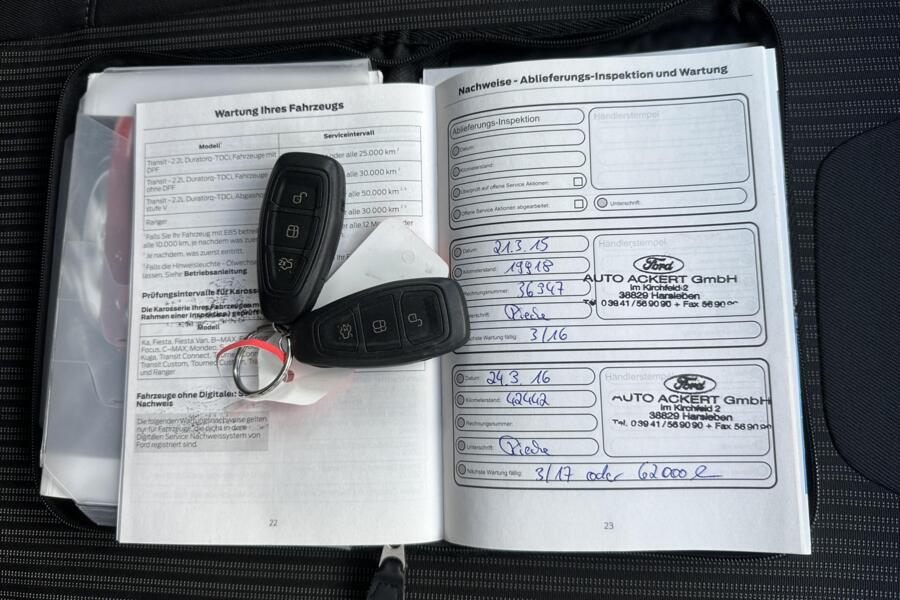 Wartung Ihres Fahrzeugs
Modell¹ Serviceintervall
Transit - 2.2L Duratorq-TDCi, Fahrzeuge mit DPF
oder alle 25.000 km
Transit - 2.2L Duratorq-TDCi, Fahrzeuge ohne DPF
alle 30.000 km
Transit - 2.2L Duratorq-TDCi,
stufe V
alle 50.000 km
Ranger
alle 30.000 km
alle 12
Falls Sie Ihr Fahrzeug mit E85
alle 10.000 km, je nachdem was
Je nachdem, was zuerst eintritt.
Falls die Hinweisleuchte -
lassen. Siehe Betriebsanleitung
Prüfungsintervalle für
Die Karosserie Ihres Fahrzeuges
Rahmen einer
Modell
Ka, Fiesta, Fiesta Van, B-MAX,
Focus, C-MAX, Mondeo,
Kuga, Transit Connect,
Transit Custom, Tourneo Custom,
und Ranger
Fahrzeuge ohne Digitalen
Nachweis
Die folgenden Wartungsnachweise gelten
nur für Fahrzeuge, die nicht in dem
Digitalen Service Nachweissystem von
Ford registriert sind.
22
Nachweise - Ablieferungs-Inspektion und Wartung
Ablieferungs-Inspektion
Händlerstempel
Datum:
Kilometerstand:
Überprüft auf offene Service Aktionen:
Offene Service Aktionen abgearbeitet:
Unterschrift:
Datum: 21.3.15
Kilometerstand: 19918
Rechnungsnummer: 36347
Nächste Wartung fällig: 3/16
Händlerstempel
Ford
AUTO ACKERT GmbH
Im Kirchfeld 2
38829 Harsleben
Tel. 03941/569090 + Fax 5690
Datum: 24.3.16
Kilometerstand: 42442
Rechnungsnummer:
Unterschrift:
Nächste Wartung fällig: 3/17 oder 62000
Händlerstempel
Ford
AUTO ACKERT GmbH
Im Kirchfeld 2
38829 Harsleben
Tel. 03941/569090 + Fax 5690
23